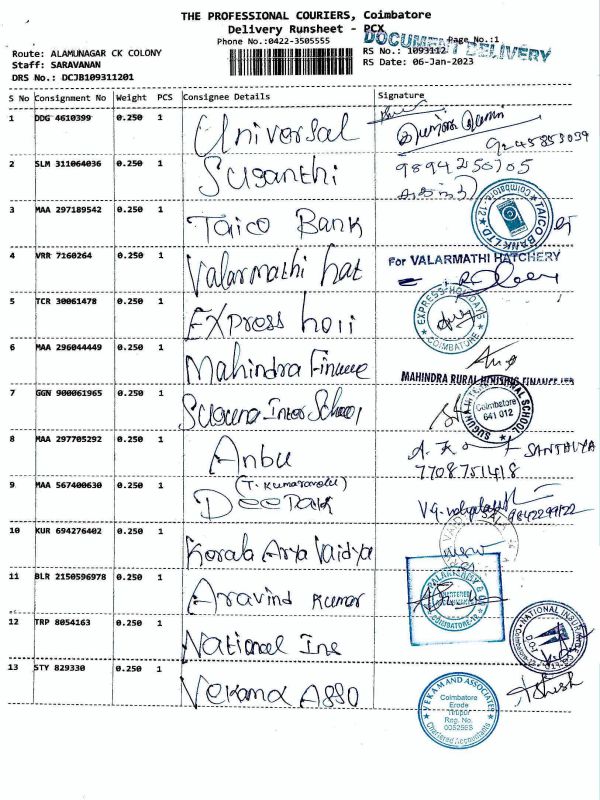 THE PROFESSIONAL COURIERS, Coimbatore
Delivery Runsheet - PCX
Phone No.:0422-3505555
Page No.:1
DOCUMENT DELIVERY
Route: ALAMUNAGAR CK COLONY
RS No.: 1093112
Staff: SARAVANAN
RS Date: 06-Jan-2023
DRS No.: DCJB109311201
S No Consignment No Weight PCS Consignee Details Signature
1 DDG 4610399 0.250 1 Universal
9245853039
2 SLM 311064036 0.250 1 Susanthi 9894250705
3 MAA 297189542 0.250 1 Taico Bank
TAICO BANK LTD Coimbatore-12
4 VRR 7160264 0.250 1 Valarmathi hat For VALARMATHI HATCHERY
5 TCR 30061478 0.250 1 Express holi
EXPRESS HOLIDAYS COIMBATORE
6 MAA 296044449 0.250 1 Mahindra Finance
MAHINDRA RURAL HOUSING FINANCE LTD
7 GGN 900061965 0.250 1 Suguna Inter School
SUGUNA INTERNATIONAL SCHOOL Coimbatore 641 012
8 MAA 297705292 0.250 1 Anbu
SANTHIYA
7708751418
9 MAA 567400630 0.250 1 (T. Kumaravelu)
Deepak
9842299122
10 KUR 694276402 0.250 1 Kerala Arya Vaidya
11 BLR 2150596978 0.250 1 Aravind Kumar
COIMBATORE-12
12 TRP 8054163 0.250 1 National Ins
NATIONAL INSURANCE
13 STY 829330 0.250 1 Vekama Asso
VEKAM AND ASSOCIATES
Coimbatore
Erode
Tirupur
Reg. No.
005256S
Chartered Accountants